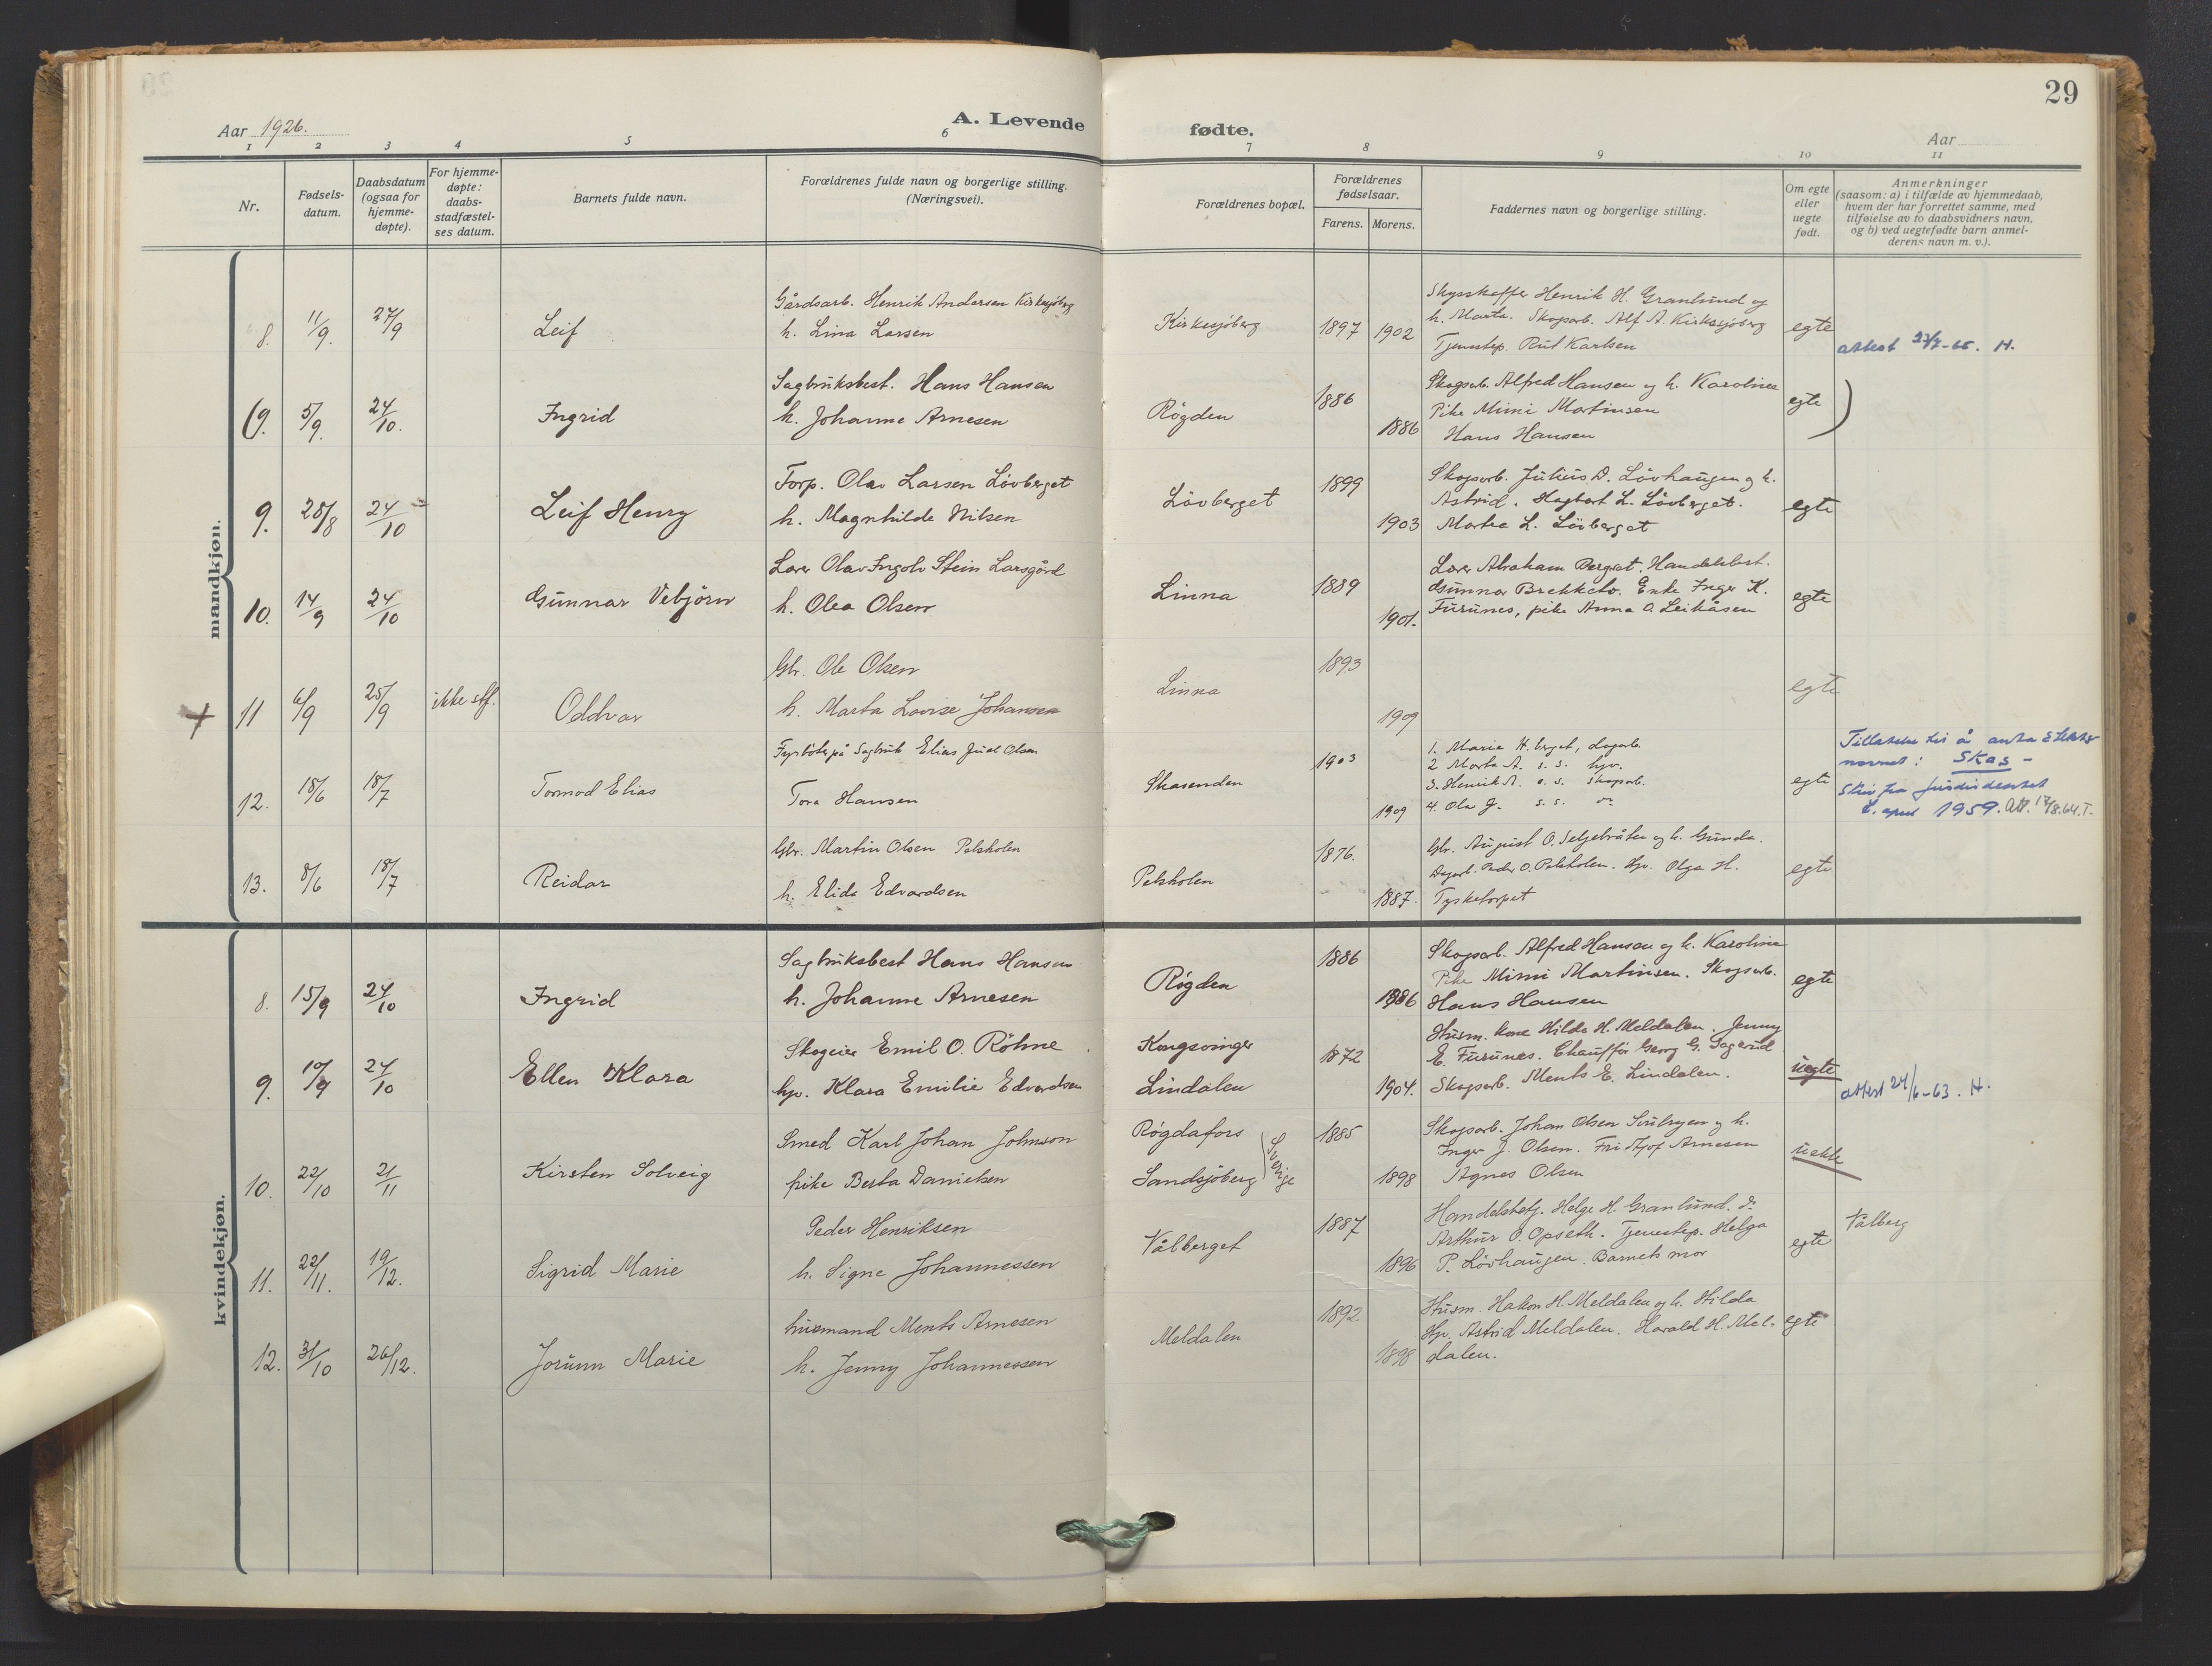 29
Aar 1926.
A. Levende
fødte.
Aar
1 2 3 4 5 6 7 8 9 10 11
Nr.
Fødsels-
datum.
Daabsdatum
(ogsaa for
hjemme-
døpte).
For hjemme-
døpte:
daabs-
stadfæstel-
ses datum.
Barnets fulde navn.
Forældrenes fulde navn og borgerlige stilling.
(Næringsvei).
Forældrenes bopæl.
Forældrenes
fødselsaar.
Farens. Morens.
Faddernes navn og borgerlige stilling.
Om egte
eller
uegte
født.
Anmerkninger
(saasom: a) i tilfælde av hjemmedaab,
hvem der har forrettet samme, med
tilføielse av to daabsvidners navn,
og b) ved uegtefødte barn anmel-
derens navn m. v.).
mandkjøn.
8. 11/9. 27/9 Leif
Gårdsarb. Henrik Andersen Kirkesjöberg
h. Lina Larsen
Kirkesjöberg 1897 1902
Skysskaffer Henrik H. Granlund og
h. Marta. Skogsarb. Alf A. Kirkesjöberg
Tjenestep. Rut Karlsen
egte
attest 23/7-65. H.
(9. 5/9. 24/10. Ingrid
Sagbruksbest. Hans Hansen
h. Johanne Arnesen
Røgden 1886 1886
Skogsarb. Alfred Hansen og h. Karoline
Pike Mimi Martinsen
Hans Hansen
egte )
9. 28/8 24/10 Leif Henry
Torp. Olav Larsen Lövberget
h. Magnhilde Nilsen
Lövberget 1899 1903
Skogsarb. Julius D. Lövhaugen og h.
Astrid. Hagbart L. Lövberget.
Martea L. Lövberget
egte
10. 14/9 24/10 Gunnar Vebjörn
Lærer Olav Ingolv Stein Larsgård
h. Olea Olsen
Linna 1889 1901.
Lærer Abraham Bergset. Handelsbest.
Gunnar Brekkebo. Enke Inger K.
Furunes, pike Anna O. Leikåsen
egte
+ 11 6/9 25/9 ikke stf. Oddvar
Gbr. Ole Olsen
h. Marta Lovise Johansen
Linna 1893 1909
egte
12. 18/6 18/7 Tormod Elias
Fyrböter på Sagbruk Elias Juel Olsen
Tora Hansen
Skasenden 1903 1909
1. Marie H. berget, dagarb.
2 Marta A. s. s. hjv.
3. Henrik A. s. s. skogsarb.
4. Ola J. s. s. do
egte
Tillatelse til å anta slekts-
navnet: Skas -
Skriv fra Justisdepartet
april 1959. Att. 17/8.64. T.
13. 8/6 18/7 Reidar
Gbr. Martin Olsen Pelsholen
h. Elida Edvardsen
Pelsholen 1876. 1887.
Gbr. August O. Seljebråten og h. Gunda.
Dagarb. Peder O. Pelsholen. Hjv. Olga H.
Tysketorpet
egte
kvindekjøn.
8. 15/9 24/10 Ingrid
Sagbruksbest Hans Hansen
h. Johanne Arnesen
Røgden 1886 1886
Skogsarb. Alfred Hansen og h. Karoline
Pike Mimi Martinsen. Skogsarb.
Hans Hansen
egte
9. 10/9 24/10 Ellen Klara
Skogeier Emil O. Röhne
hjv. Klara Emilie Edvardsen
Kongsvinger
Lindalen
1872 1904.
Husm. kone Hilda H. Meldalen. Jenny
E. Furunes. Chauffør Georg G. Sagerud
Skogsarb. Ments E. Lindalen.
uegte
attest 24/6-63. H.
10. 22/10 21/11 Kirsten Solveig
Smed Karl Johan Johnson
pike Berta Danielsen
Røgdafors
Sandsjöberg
Sverige
1885 1898
Skogsarb. Johan Olsen og h.
Inger J. Olsen. Fridtjof Arnesen
Agnes Olsen
uekte
11. 22/11. 19/12. Sigrid Marie
Peder Henriksen
h. Signe Johannessen
Vålberget 1887 1896
Handelsbetj. Helge H. Granlund. do
Arthur O. Opseth. Tjenestep. Helga
P. Lövhaugen. Barnets mor
egte
Vålberg
12. 31/10 26/12. Jorunn Marie
husmand Ments Arnesen
h. Jenny Johannessen
Meldalen 1892 1898
Husm. Hakon H. Meldalen og h. Hilda
Hjv. Astrid Meldalen. Harald H. Mel-
dalen.
egte